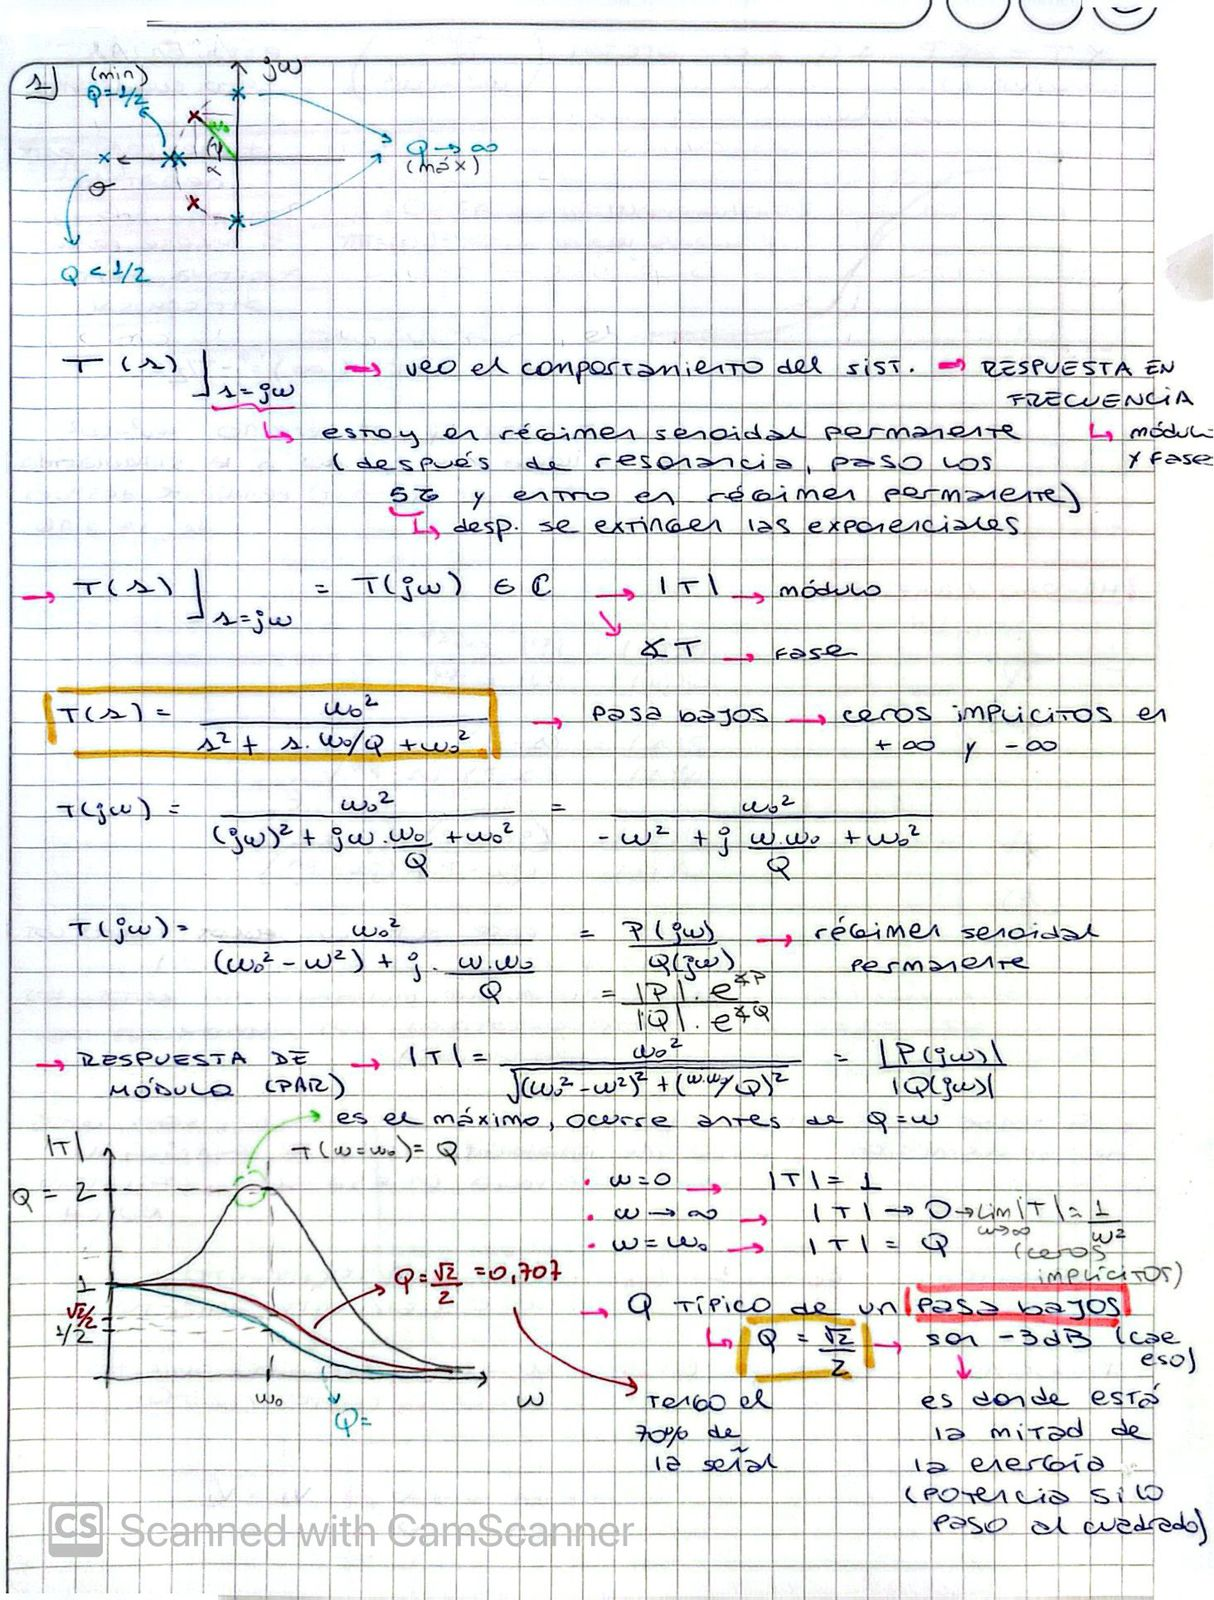 1)
(min)
Q=1/2
jω
ω₀
ψ
α
Q → ∞
(máx)
σ
Q < 1/2
T(s)⌋s=jω → veo el comportamiento del sist. → RESPUESTA EN
FRECUENCIA
↳ estoy en régimen senoidal permanente ↳ módulo
(después de resonancia, paso los y fase
5τ y entro en régimen permanente)
↳ desp. se extinguen las exponenciales
→ T(s)⌋s=jω = T(jω) ∈ ℂ → |T| → módulo
↘ ∡T → fase
T(s) = ω₀² / (s² + s.ω₀/Q + ω₀²) → pasa bajos → ceros implícitos en
+∞ y -∞
T(jω) = ω₀² / ((jω)² + jω.ω₀/Q + ω₀²) = ω₀² / (-ω² + j ω.ω₀/Q + ω₀²)
T(jω) = ω₀² / ((ω₀² - ω²) + j. ω.ω₀/Q) = P(jω)/Q(jω) → régimen senoidal
permanente
= |P|.e^∡P / |Q|.e^∡Q
→ RESPUESTA DE → |T| = ω₀² / √((ω₀² - ω²)² + (ω.ω₀/Q)²) = |P(jω)| / |Q(jω)|
MÓDULO (PAR)
→ es el máximo, ocurre antes de Q=ω
|T|
T(ω=ω₀) = Q
Q = 2
1
√2/2
1/2
ω₀
ω
Q=
Q = √2/2 = 0,707
• ω=0 → |T| = 1
• ω → ∞ → |T| → 0 → Lim ω→∞ |T| = 1/ω²
• ω = ω₀ → |T| = Q
(ceros
implícitos)
→ Q típico de un pasa bajos
↳ Q = √2/2 → son -3dB (cae
eso)
tengo el
70% de
la señal
es donde está
la mitad de
la energía
(potencia si lo
paso al cuadrado)
CS Scanned with CamScanner